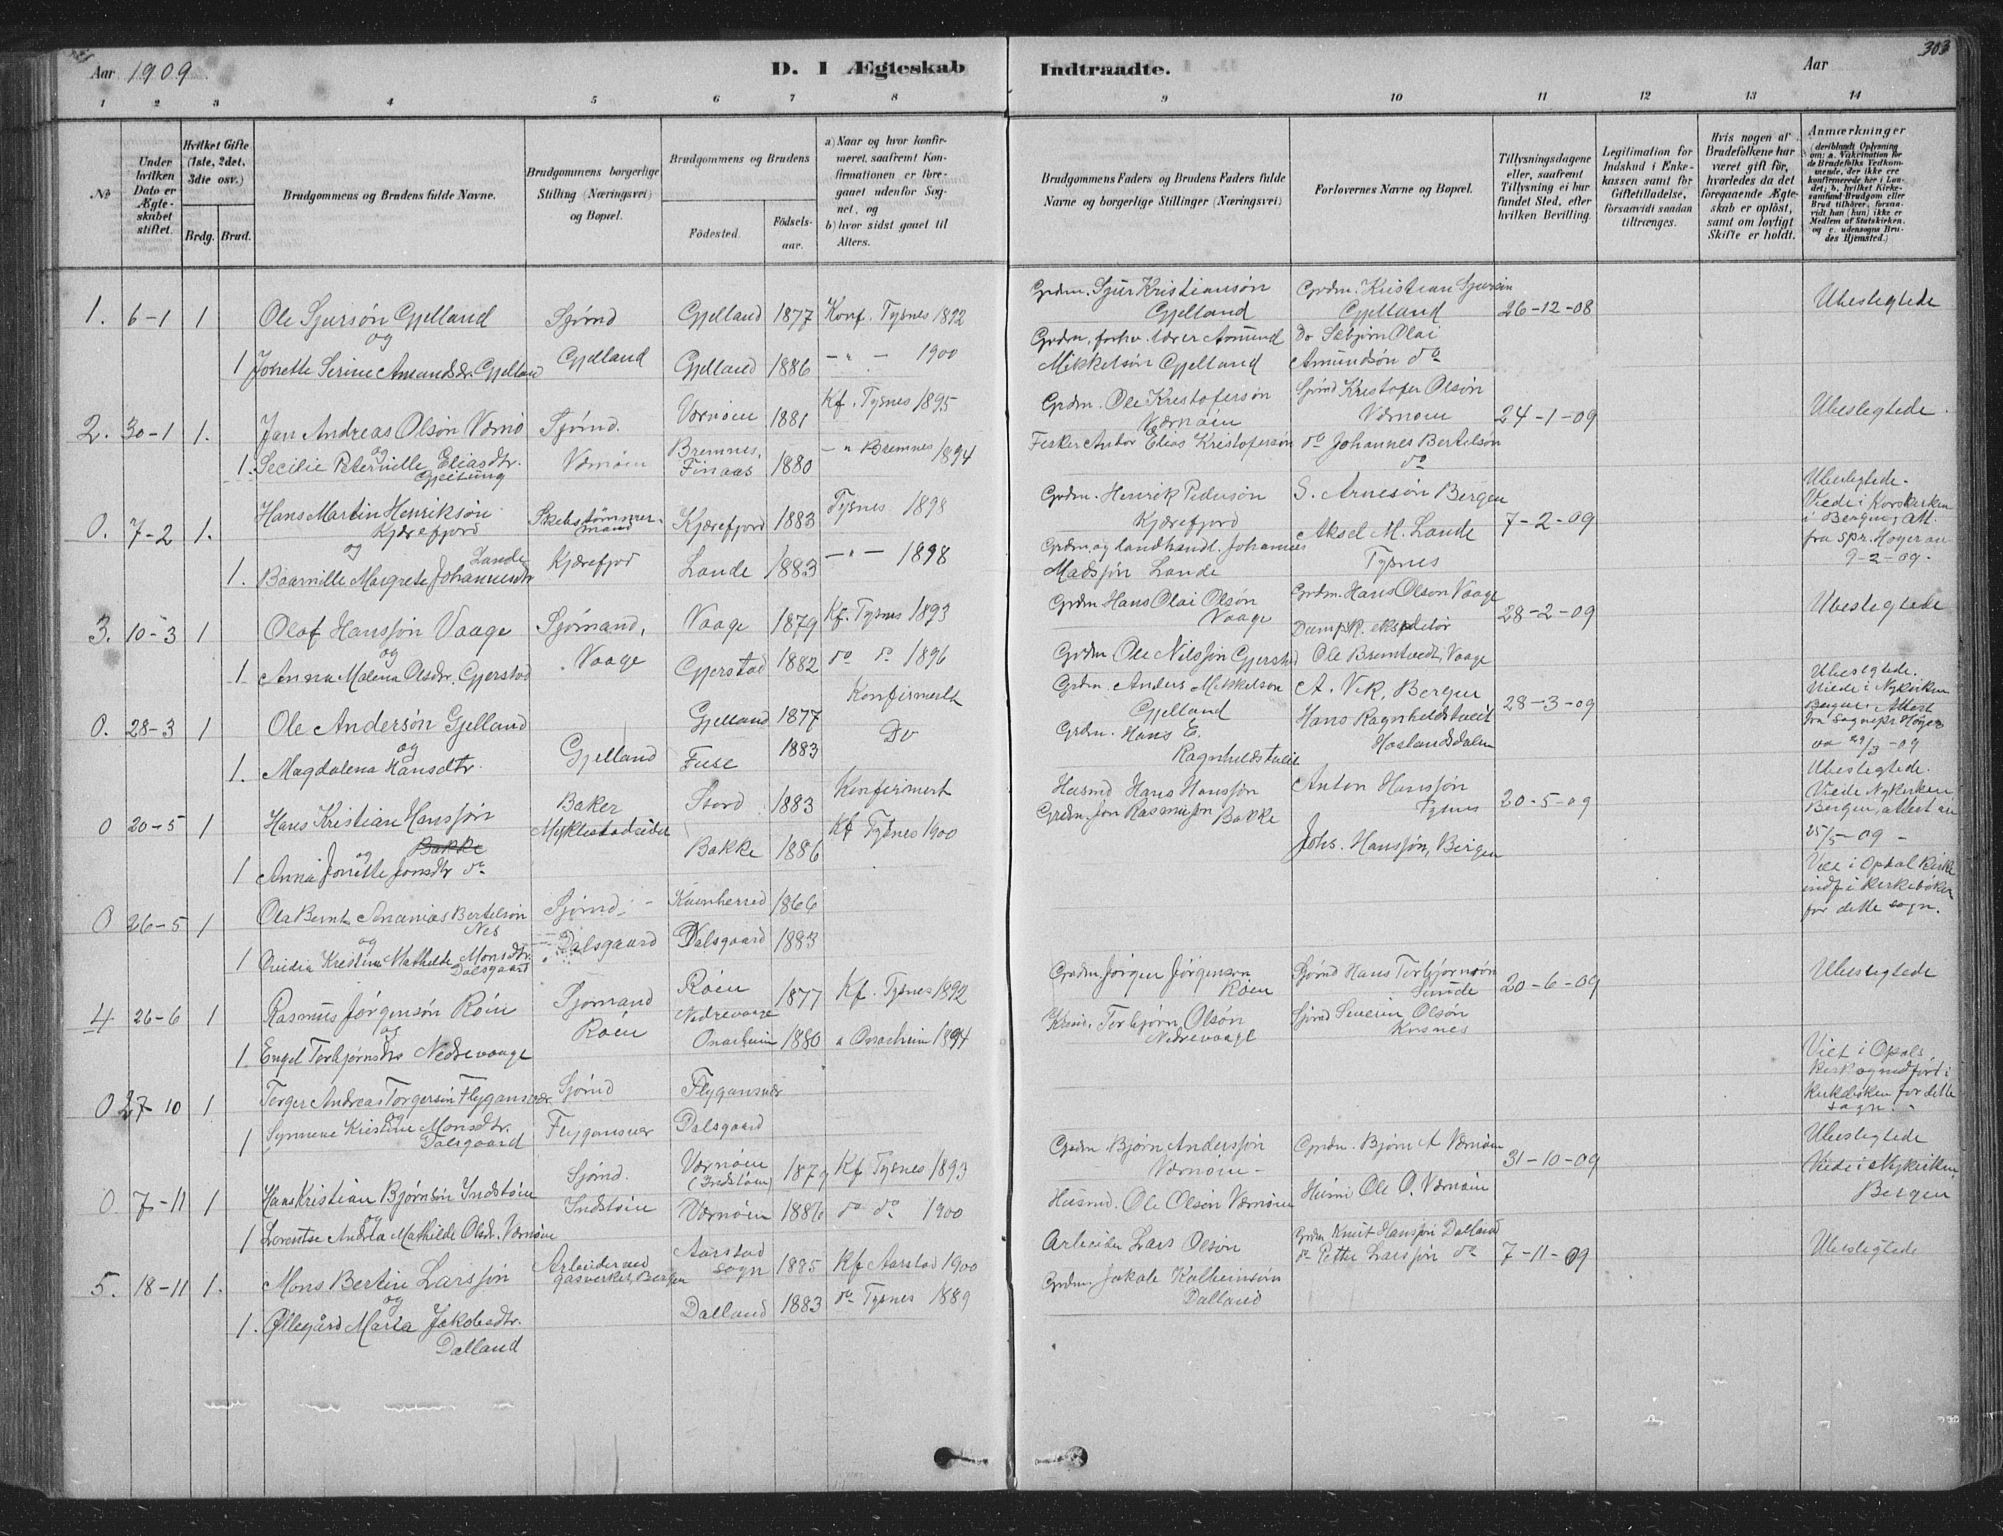 Aar 1909. D. I Ægteskab Indtraadte. Aar 303
1 2 3 4 5 6 7 8 9 10 11 12 13 14
No
Under hvilken Dato er Ægteskabet stiftet.
Hvilket Gifte (1ste, 2det, 3die osv.)
Brdg. Brud.
Brudgommens og Brudens fulde Navne.
Brudgommens borgerlige Stilling (Næringsvei) og Bopæl.
Brudgommens og Brudens
Födested. Födselsaar.
a) Naar og hvor konfirmeret, saafremt Konfirmationen er foregaaet udenfor Sognet, og
b) hvor sidst gaaet til Alters.
Brudgommens Faders og Brudens Faders fulde Navne og borgerlige Stillinger (Næringsvei)
Forlovernes Navne og Bopæl.
Tillysningsdagene eller, saafremt Tillysning ei har fundet Sted, efter hvilken Bevilling.
Legitimation for Indskud i Enkekassen samt for Giftetilladelse, forsaavidt saadan tiltrænges.
Hvis nogen af Brudefolkene har været gift før, hvorledes da det foregaaende Ægteskab er oplöst, samt om lovligt Skifte er holdt.
Anmærkninger (deriblandt Oplysning om: a. Vakcination for de Brudefolks Vedkommende, der ikke ere konfirmerede her i Landet; b. hvilket Kirkesamfund Brudgom eller Brud tilhörer, forsaavidt han (hun) ikke er Medlem af Statskirken, og c. udensogns Brudes Hjemsted.)
1. 6-1 1 Ole Sjursøn Gjelland Sjømd Gjelland 1877 Konf. Tysnes 1892 Grdm. Sjur Kristiansøn Gjelland Grdm. Kristian Sjursøn Gjelland 26-12-08 Ubeslegtede
og
1 Jonette Serine Amundsdr. Gjelland Gjelland Gjelland 1886 - " - 1900 Grdm, forhv. lærer Amund Mikkelsøn Gjelland Do Sebjørn Olai Amundsøn do
2. 30-1 1. Jan Andreas Olsøn Værnø Sjømd. Værnøen 1881 Kf. Tysnes 1895 Grdm. Ole Kristofersøn Værnøen Sjømd Kristofer Olsøn Værnøen 24-1-09 Ubeslegtede
og
1. Secilie Peternille Eliasdtr. Gjeitung Værnøen Bremnes, Finaas 1880 - " Bremnes 1894 Fisker Anton Elias Kristofersøn do Johannes Bertelson do
0. 7-2 1. Hans Martin Henriksøn Kjærefjord Skibstømmermand Kjærefjord 1883 Tysnes 1898 Grdm. Henrik Pedersøn Kjærefjord S. Arnesøn Bergen 7-2-09 Ubeslegtede. Viede i Korskirken i Bergen, Att. fra spr. Høyer an 9-2-09.
og
1. Baarnille Margrete Johannesdtr Lande Kjærefjord Lande 1883 - " - 1898 Grdm. og landhandl. Johannes Madsjøn Lande Aksel M. Lande Tysnes
3. 10-3 1 Olaf Hansjøn Vaage Sjømand, Vaage 1879 Kf. Tysnes 1893 Grdm Hans Olai Olsøn Vaage Grdm. Hans Olson Vaage 28-2-09 Ubeslegtede
og
1. Anna Malena Olsdtr. Gjerstad Vaage Gjerstad 1882 do do 1896 Grdm Ole Nilsjøn Gjerstad Dampsk. ekspeditør Ole Bremtvedt, Vaage
0. 28-3 1 Ole Andersøn Gjelland Gjelland 1877 Konfirmert Grdm. Anders Mikkelson Gjelland A. Vik, Bergen 28-3-09 Ubeslegtede. Viede i Nykirken Bergen. Attest fra sognepr. Høyer 29/3-09
og
1. Magdalena Hansdtr. Gjelland Fuse 1883 Do Grdm. Hans E. Ragnhildstveit Hans Ragnhildstveit Haslandsdalen
0 20-5 1 Hans Kristian Hansjøn Bakke Baker Myklestadeidet Stord 1883 Konfirmert Husmd Hans Hansjøn Anton Hansjøn Tysnes 20-5-09 Ubeslegtede. Viede Nykirken Bergen, attest an 25/5-09 -
og
1 Anna Jonette Jonsdtr do Bakke 1886 Kf Tysnes 1900 Grdm. Jon Rasmusjøn Bakke Johs. Hansjøn, Bergen
0 26-5 1 Ola Bernt Ananias Bertelsøn Nes Sjømd. - Kvinherred 1866 Viet i Opdal Kirke indf. i Kirkebøken for dette sogn.
og
1 Kristina Mathilde Monsdtr. Dalsgaard Dalsgaard Dalsgaard 1883
4 26-6 1 Rasmus Jørgensøn Røen Sjømand Røen 1877 Kf. Tysnes 1892 Grdm. Jørgen Jørgenson Røen Sjømd Hans Torbjørnsøn Sunde 20-6-09 Ubeslegtede
og
1. Engel Torbjørnsdtr Nedrevaage Røen Nedrevaage Onarheim 1880 " Onarheim 1894 Torbjørn Olsøn Nedrevaage Sjømd Severin Olsøn
0 27-10 1 Torger Andreas Torgersøn Flygansvær Sjømd Flygansvær Viet i Opdals Kirk og indført i Kirkeboken for dette sogn.
og
1 Synneve Kristine Monsdtr. Dalsgaard Flygansvær Dalsgaard
0. 7-11 1 Hans Kristian Bjørnsøn Indstøen Sjømd. Værnøen (Indstøen) 1879 Kf Tysnes 1893 Grdm. Bjørn Andersjøn Værnøen - Grdm. Bjørn A Værnøen 31-10-09 Ubeslegtede Viede i Nykirken Bergen
og
1 Lorentse Andrea Mathilde Olsdr. Værnøen Indstøen Værnøen 1886 do do 1900 Husmd. Ole Olsøn Værnøen Husm Ole O. Værnøen
5. 18-11 1. Mons Bertin Larsjøn Arbeider ved gasverket, Bergen Aarstad sogn 1885 Kf Aarstad 1900 Arbeider Lars Olsøn Grdm Knut Hansjøn Dalland 7-11-09 Ubeslegtede
og
1. Øllegård Maria Jakobsdtr. Dalland Dalland 1883 do Tysnes 1889 Grdm. Jakob Kolbeinsøn Dalland do Petter Larsjøn do